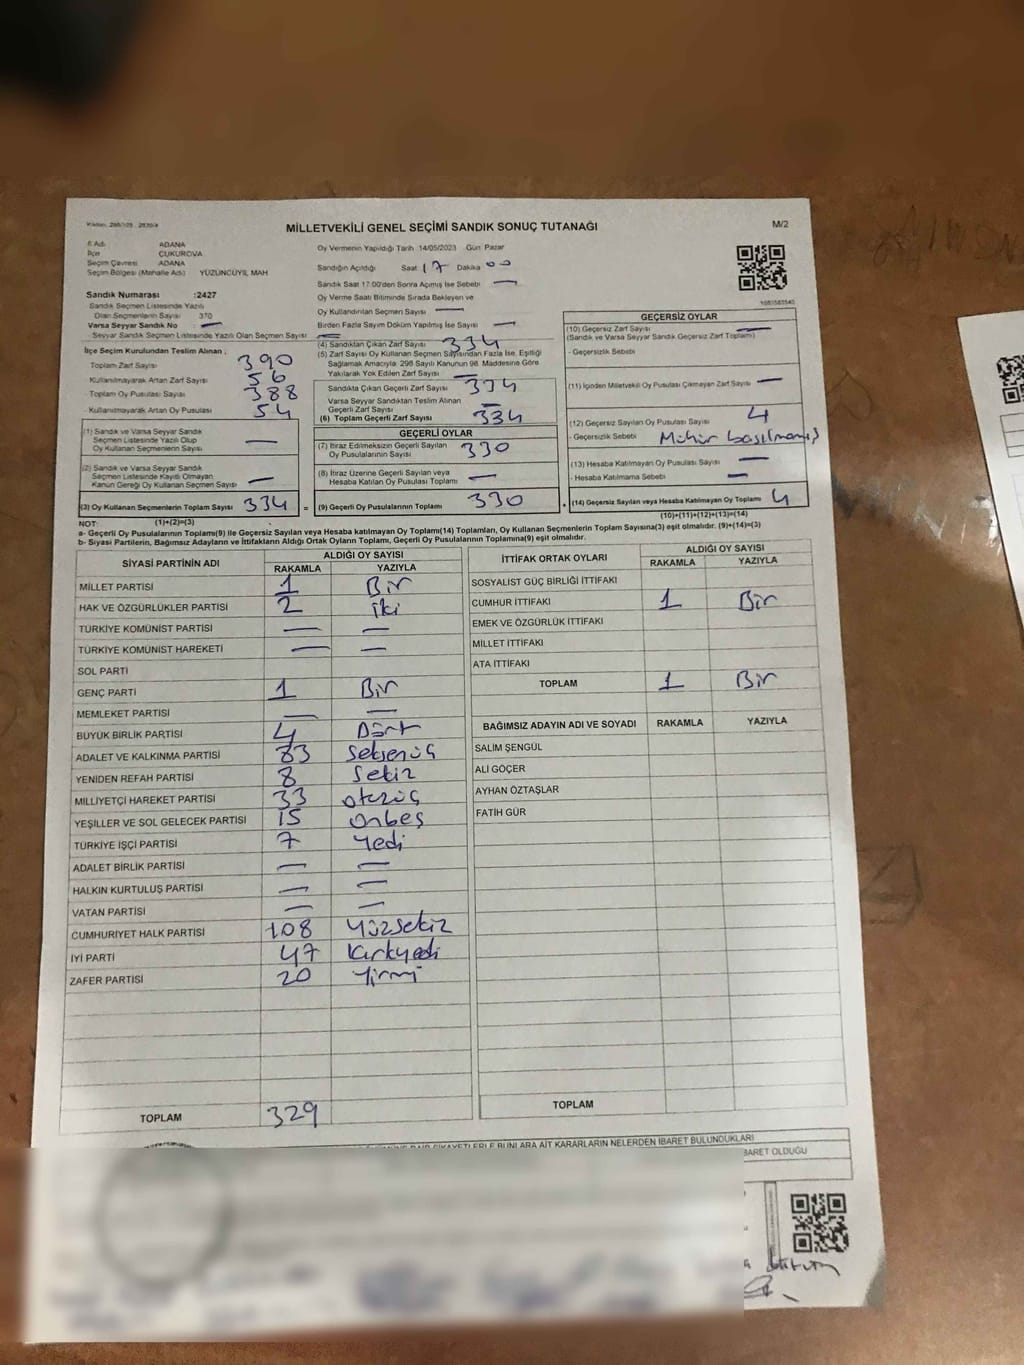 MİLLETVEKİLİ GENEL SEÇİMİ SANDIK SONUÇ TUTANAĞI
M/2
İl Adı ADANA
İlçe ÇUKUROVA
Seçim Çevresi ADANA
Seçim Bölgesi (Mahalle Adı) YÜZÜNCÜYIL MAH
Sandık Numarası :2427
Sandık Seçmen Listesinde Yazılı
Olan Seçmenlerin Sayısı 370
Varsa Seyyar Sandık No —
- Seyyar Sandık Seçmen Listesinde Yazılı Olan Seçmen Sayısı —
İlçe Seçim Kurulundan Teslim Alınan ;
Toplam Zarf Sayısı 390
Kullanılmayarak Artan Zarf Sayısı 56
- Toplam Oy Pusulası Sayısı 388
- Kullanılmayarak Artan Oy Pusulası 54
(1) Sandık ve Varsa Seyyar Sandık
Seçmen Listesinde Yazılı Olup
Oy Kullanan Seçmenlerin Sayısı —
(2) Sandık ve Varsa Seyyar Sandık
Seçmen Listesinde Kayıtlı Olmayan
Kanun Gereği Oy Kullanan Seçmen Sayısı —
(3) Oy Kullanan Seçmenlerin Toplam Sayısı 334 =
(1)+(2)=(3)
Oy Vermenin Yapıldığı Tarih 14/05/2023 Gün Pazar
Sandığın Açıldığı Saat 17 Dakika 00
Sandık Saat 17:00'den Sonra Açılmış İse Sebebi —
Oy Verme Saati Bitiminde Sırada Bekleyen ve
Oy Kullandırılan Seçmen Sayısı —
Birden Fazla Sayım Döküm Yapılmış İse Sayısı —
(4) Sandıktan Çıkan Zarf Sayısı 334
(5) Zarf Sayısı Oy Kullanan Seçmen Sayısından Fazla İse, Eşitliği
Sağlamak Amacıyla 298 Sayılı Kanunun 98. Maddesine Göre
Yakılarak Yok Edilen Zarf Sayısı —
Sandıkta Çıkan Geçerli Zarf Sayısı 334
Varsa Seyyar Sandıktan Teslim Alınan
Geçerli Zarf Sayısı —
(6) Toplam Geçerli Zarf Sayısı 334
GEÇERLİ OYLAR
(7) İtiraz Edilmeksizin Geçerli Sayılan
Oy Pusulalarının Sayısı 330
(8) İtiraz Üzerine Geçerli Sayılan veya
Hesaba Katılan Oy Pusulası Toplamı —
(9) Geçerli Oy Pusulalarının Toplamı 330 +
GEÇERSİZ OYLAR
(10) Geçersiz Zarf Sayısı —
(Sandık ve Varsa Seyyar Sandık Geçersiz Zarf Toplamı)
- Geçersizlik Sebebi
(11) İçinden Milletvekili Oy Pusulası Çıkmayan Zarf Sayısı —
(12) Geçersiz Sayılan Oy Pusulası Sayısı 4
- Geçersizlik Sebebi Mühür basılmamış
(13) Hesaba Katılmayan Oy Pusulası Sayısı —
- Hesaba Katılmama Sebebi —
(14) Geçersiz Sayılan veya Hesaba Katılmayan Oy Toplamı 4
(10)+(11)+(12)+(13)=(14)
NOT:
a- Geçerli Oy Pusulalarının Toplamı(9) ile Geçersiz Sayılan veya Hesaba katılmayan Oy Toplamı(14) Toplamları, Oy Kullanan Seçmenlerin Toplam Sayısına(3) eşit olmalıdır. (9)+(14)=(3)
b- Siyasi Partilerin, Bağımsız Adayların ve İttifakların Aldığı Ortak Oyların Toplamı, Geçerli Oy Pusulalarının Toplamına(9) eşit olmalıdır.
SİYASİ PARTİNİN ADI ALDIĞI OY SAYISI
RAKAMLA YAZIYLA
MİLLET PARTİSİ 1 Bir
HAK VE ÖZGÜRLÜKLER PARTİSİ 2 iki
TÜRKİYE KOMÜNİST PARTİSİ — —
TÜRKİYE KOMÜNİST HAREKETİ — —
SOL PARTİ
GENÇ PARTİ 1 Bir
MEMLEKET PARTİSİ — —
BÜYÜK BİRLİK PARTİSİ 4 Dört
ADALET VE KALKINMA PARTİSİ 83 Seksenüç
YENİDEN REFAH PARTİSİ 8 Sekiz
MİLLİYETÇİ HAREKET PARTİSİ 33 otuzüç
YEŞİLLER VE SOL GELECEK PARTİSİ 15 onbeş
TÜRKİYE İŞÇİ PARTİSİ 7 Yedi
ADALET BİRLİK PARTİSİ — —
HALKIN KURTULUŞ PARTİSİ — —
VATAN PARTİSİ — —
CUMHURİYET HALK PARTİSİ 108 Yüzsekiz
İYİ PARTİ 47 Kırkyedi
ZAFER PARTİSİ 20 Yirmi
TOPLAM 329
İTTİFAK ORTAK OYLARI ALDIĞI OY SAYISI
RAKAMLA YAZIYLA
SOSYALİST GÜÇ BİRLİĞİ İTTİFAKI
CUMHUR İTTİFAKI 1 Bir
EMEK VE ÖZGÜRLÜK İTTİFAKI
MİLLET İTTİFAKI
ATA İTTİFAKI
TOPLAM 1 Bir
BAĞIMSIZ ADAYIN ADI VE SOYADI RAKAMLA YAZIYLA
SALİM ŞENGÜL
ALİ GÖÇER
AYHAN ÖZTAŞLAR
FATİH GÜR
TOPLAM
ŞİKAYETLERLE BUNLARA AİT KARARLARIN NELERDEN İBARET BULUNDUKLARI
İBARET OLDUĞU